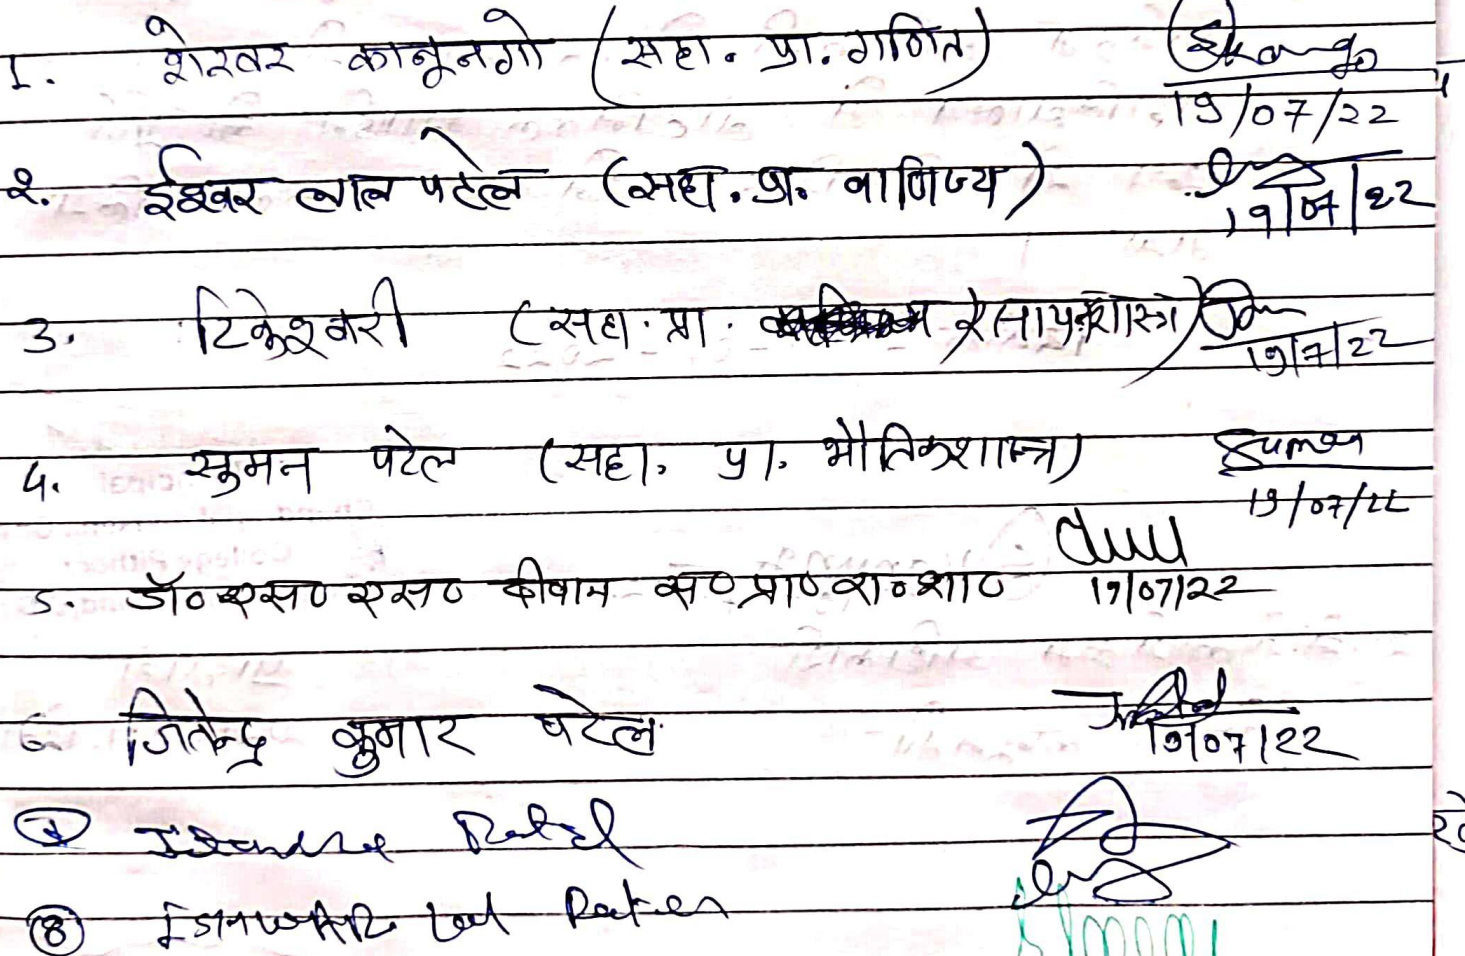 1. शेखर कानूनगो (सहा. प्रा. गणित)
19/07/22
2. ईश्वर लाल पटेल (सहा. प्रा. वाणिज्य)
19/07/22
3. टिकेश्वरी (सहा. प्रा. रसायनशास्त्र)
19/7/22
4. सुमन पटेल (सहा. प्रा. भौतिकशास्त्र) Suman
19/07/22
5. डॉ० एस० एस० दीवान स० प्रा० रा० शा० 19/07/22
6 जितेन्द्र कुमार पटेल
19/07/22
7 Patel
8 Lal